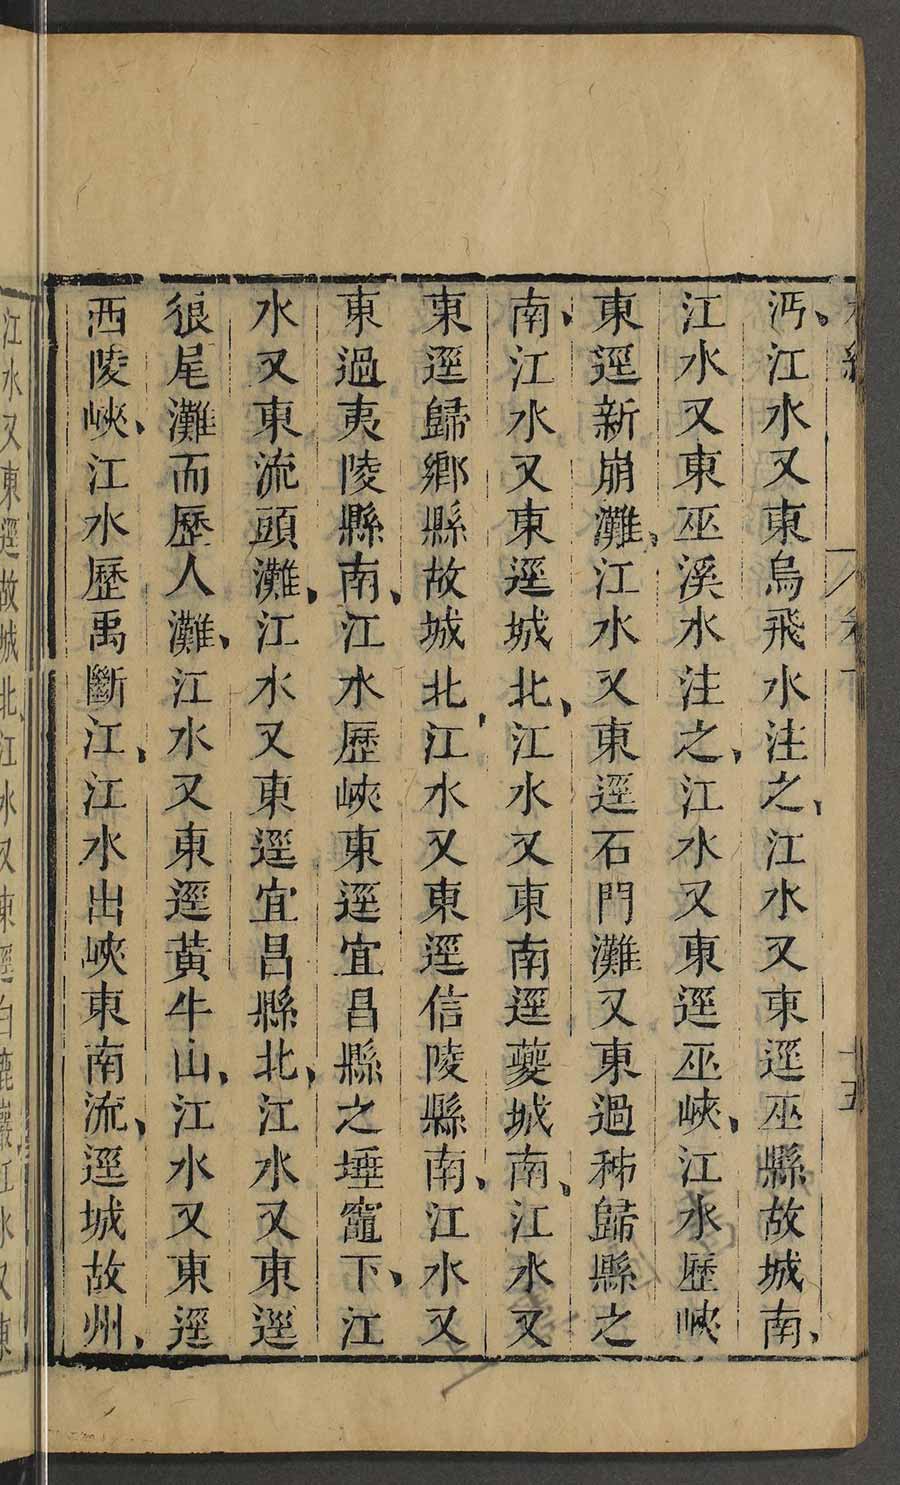 沔、江水又東烏飛水注之、江水又東逕巫縣故城南、
江水又東巫溪水注之、江水又東逕巫峽、江水歷峽
東逕新崩灘、江水又東逕石門灘又東過秭歸縣之
南、江水又東逕城北、江水又東南逕夔城南、江水又
東逕歸鄉縣故城北、江水又東逕信陵縣南、江水又
東過夷陵縣南、江水歷峽東逕宜昌縣之埵竈下、江
水又東流頭灘、江水又東逕宜昌縣北、江水又東逕
狼尾灘而歷人灘、江水又東逕黃牛山、江水又東逕
西陵峽、江水歷禹斷江、江水出峽東南流、逕城故州、
江水又東逕故城北、江水又東逕白鹿巖江水又東